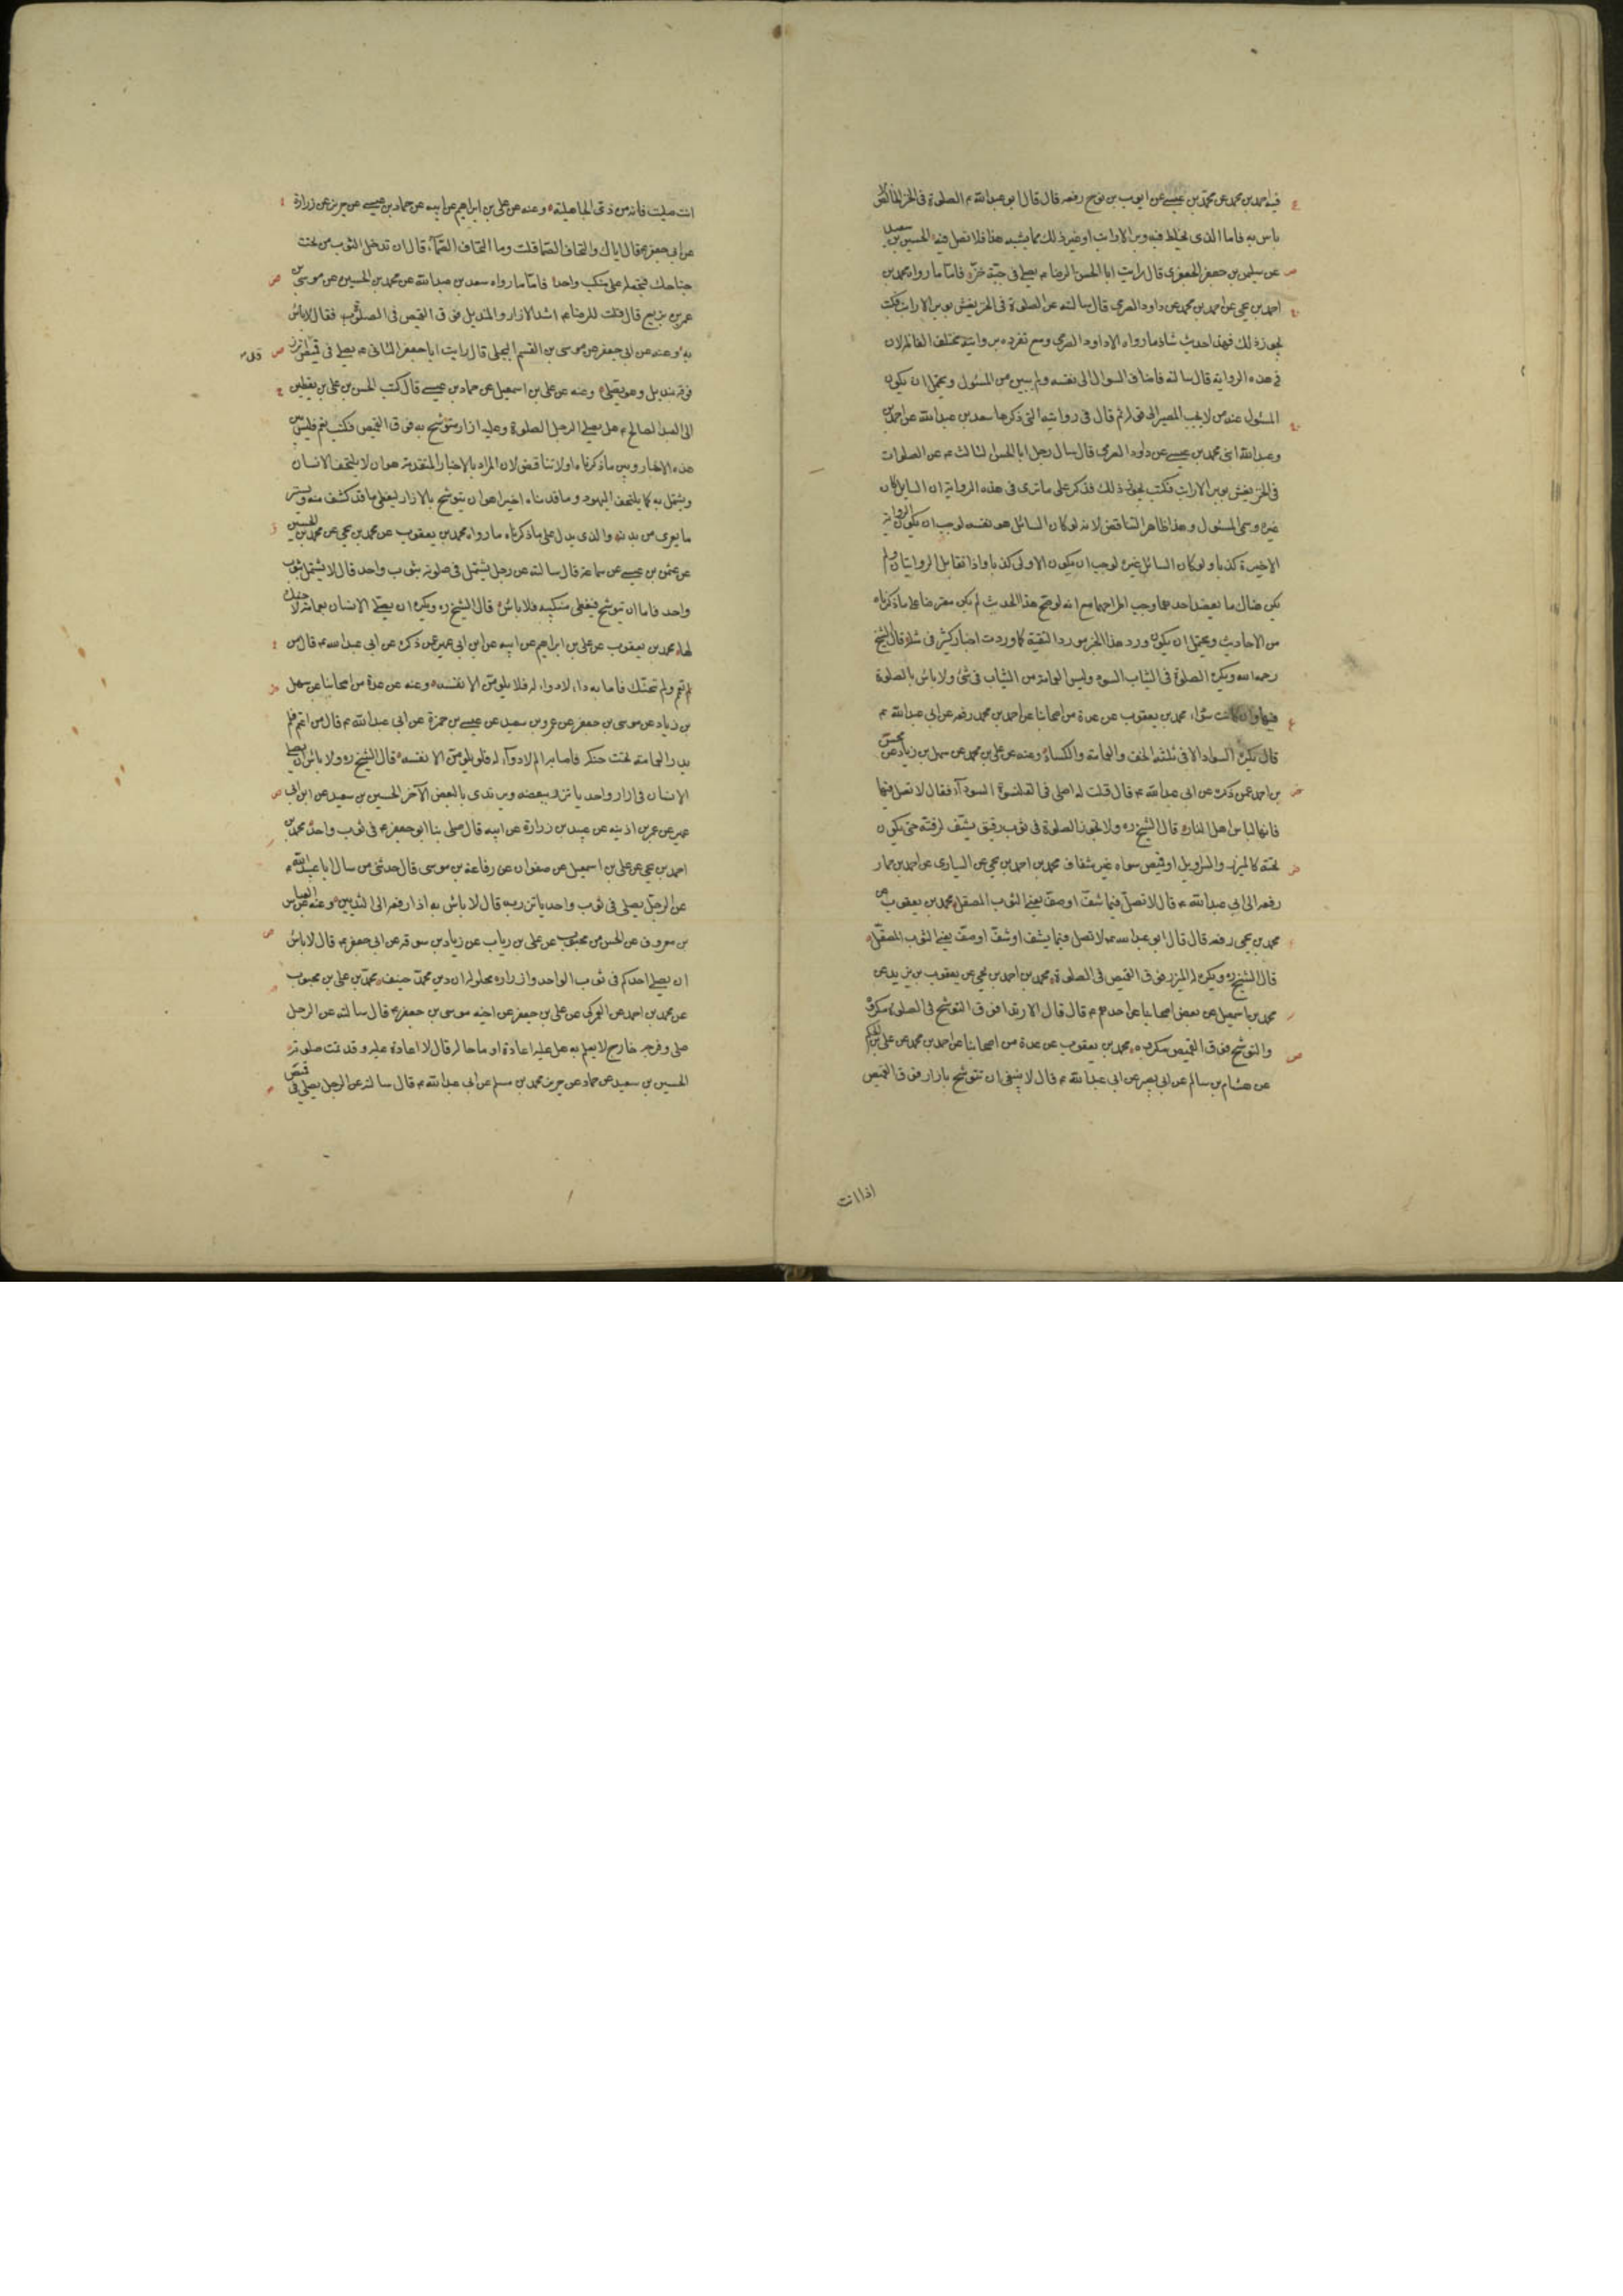 فيه احمد بن محمد عن محمد بن عيسى عن ايوب بن نوح رفعه قال قال ابو عبدالله ع الصلوة فى الخز الخالص لا
باس به فاما الذى يخلط فيه وبر الارانب او غير ذلك مما يشبه هذا فلا تصل فيه الحسين بن سعيد
عن سليمن بن جعفر الجعفرى قال رايت ابا الحسن الرضا ع يصلى فى جبة خز فاما ما رواه محمد بن
احمد بن يحيى عن احمد بن محمد عن داود الصرمى قال سالته عن الصلوة فى الخز يغش بوبر الارانب فكتب
يجوز ذلك فهذا حديث شاذ ما رواه الا داود الصرمى ومع تفرده بروايته مختلف الفاظه لان
فى هذه الرواية قال سالته فاضاف السوال الى نفسه ولم يبين من المسئول ويحتمل ان يكون
المسئول عنه من لا يجب المصير الى قوله ثم قال فى روايته التى ذكرها سعد بن عبدالله عن احمد بن
وعبدالله ابنى محمد بن عيسى عن داود الصرمى قال سال رجل ابا الحسن الثالث ع عن الصلوات
فى الخز يغش بوبر الارانب فكتب يجوز ذلك فذكر على ما ترى فى هذه الرواية ان السايل كان
غيره وسمى المسئول وهذا ظاهر التناقض لانه لو كان السائل هو نفسه لوجب ان يكون الرواية
الاخيرة كذبا ولو كان السائل غيره لوجب ان يكون الاولى كذبا واذا تقابل الروايتان ولم
يكن هناك ما يعضد احدهما وجب اطراحهما مع انه لو صح هذا الحديث لم يكن معترضا على ما ذكرناه
من الاحاديث ويحتمل ان يكون ورد هذا الخبر مورد التقية كما وردت اخبار كثيرة فى مثله قال الشيخ
رحمه الله ويكره الصلوة فى الثياب السود وليس العمامة من الثياب فى شئ ولا باس بالصلوة
فيها وان كانت سوداء محمد بن يعقوب عن عدة من اصحابنا عن احمد بن محمد رفعه عن ابى عبدالله ع
قال يكره السواد الا فى ثلثة الخف والعمامة والكساء وعنه عن على بن محمد عن سهل بن زياد عن محسن
بن احمد عمن ذكره عن ابى عبدالله ع قال قلت له اصلى فى القلنسوة السوداء فقال لا تصل فيها
فانها لباس اهل النار قال الشيخ ره ولا تجوز الصلوة فى ثوب رقيق يشف لرقته حتى يكون
تحته كالميزر والسراويل او قميص سواه غير شفاف محمد بن احمد بن يحيى عن السيارى عن احمد بن حماد
رفعه الى ابى عبدالله ع قال لا تصل فيما شف او صف يعنى الثوب المصقل محمد بن يعقوب عن
محمد بن يحيى رفعه قال قال ابو عبدالله ع لا تصل فيما يشف او شف او صف يعنى الثوب المصقل
قال الشيخ ره ويكره له الميزر فوق القميص فى الصلوة محمد بن احمد بن يحيى عن يعقوب بن يزيد عن
محمد بن اسمعيل عن بعض اصحابنا عن احدهم ع قال قال الارتدا فوق التوشح فى الصلوة مكروه
والتوشح فوق القميص مكروه محمد بن يعقوب عن عدة من اصحابنا عن احمد بن محمد عن على بن الحكم
عن هشام بن سالم عن ابى بصير عن ابى عبدالله ع قال لا ينبغى ان تتوشح بازار فوق القميص
اذا انت
انت صليت فانه من زى الجاهلية وعنه عن على بن ابراهيم عن ابيه عن حماد بن عيسى عن حريز عن زرارة
عن ابى جعفر ع قال اياك والتحاف الصما قلت وما التحاف الصماء قال ان تدخل الثوب من تحت
جناحك فتجعله على منكب واحد فاما ما رواه سعد بن عبدالله عن محمد بن الحسين عن موسى بن
عمر بن بزيع قال قلت للرضا ع اشد الازار والمنديل فوق القميص فى الصلوة فقال لا باس
به وعنه عن ابى جعفر عن موسى بن القسم البجلى قال رايت ابا جعفر الثانى ع يصلى فى قميص قد اتزر
فوقه بمنديل وهو يصلى وعنه عن على بن اسمعيل عن حماد بن عيسى قال كتب الحسن بن على بن يقطين
الى العبد الصالح ع هل يصلى الرجل الصلوة وعليه ازار متوشح به فوق القميص فكتب نعم فليس بين
هذه الاخبار وبين ما ذكرناه اولا تناقض لان المراد بالاخبار المتقدمة هو ان لا يلتحف الانسان
ويشتمل به كما يلتحف اليهود وما قدمناه اخيرا هو ان يتوشح بالازار ليغطى ما قد كشف منه ويستر
ما يعرى من بدنه والذى يدل على ما ذكرناه ما رواه محمد بن يعقوب عن محمد بن يحيى عن محمد بن الحسين
عن عثمن بن عيسى عن سماعة قال سالته عن رجل يشتمل فى صلوته بثوب واحد قال لا يشتمل بثوب
واحد فاما ان يتوشح فيغطى منكبيه فلا باس قال الشيخ ره ويكره ان يصلى الانسان بعمامة لا حنك
لها محمد بن يعقوب عن على بن ابراهيم عن ابيه عن ابن ابى عمير عمن ذكره عن ابى عبدالله ع قال من
لم يتحنك فاصابه داء لا دواء له فلا يلومن الا نفسه وعنه عن عدة من اصحابنا عن سهل
بن زياد عن موسى بن جعفر عن عمرو بن سعيد عن عيسى بن حمزة عن ابى عبدالله ع قال من اعتم فلم
يدر العمامة تحت حنكه فاصابه الم لا دواء له فلا يلومن الا نفسه قال الشيخ ره ولا باس ان يصلى
الانسان فى ازار واحد ياتزر ببعضه ويرتدى بالبعض الآخر الحسين بن سعيد عن ابن ابى
عمير عن عمر بن اذينه عن عبيد بن زرارة عن ابيه قال صلى بنا ابو جعفر ع فى ثوب واحد محمد بن
احمد بن يحيى عن على بن اسمعيل عن صفوان عن رفاعة بن موسى قال حدثنى من سال ابا عبدالله ع
عن الرجل يصلى فى ثوب واحد ياتزر به قال لا باس به اذا رفعه الى الثديين وعنه عن العباس
بن معروف عن الحسن بن محبوب عن على بن رياب عن زياد بن سوقه عن ابى جعفر ع قال لا باس
ان يصلى احدكم فى ثوب الواحد وازراره محلوله ان دين محمد حنيف محمد بن على بن محبوب
عن محمد بن احمد عن العمركى عن على بن جعفر عن اخيه موسى بن جعفر ع قال سالته عن الرجل
صلى وفرجه خارج لا يعلم به هل عليه اعادة او ما حاله قال لا اعادة عليه وقد تمت صلوته
الحسين بن سعيد عن حماد عن حريز محمد بن مسلم عن ابى عبدالله ع قال سالته عن الرجل يصلى فى قميص